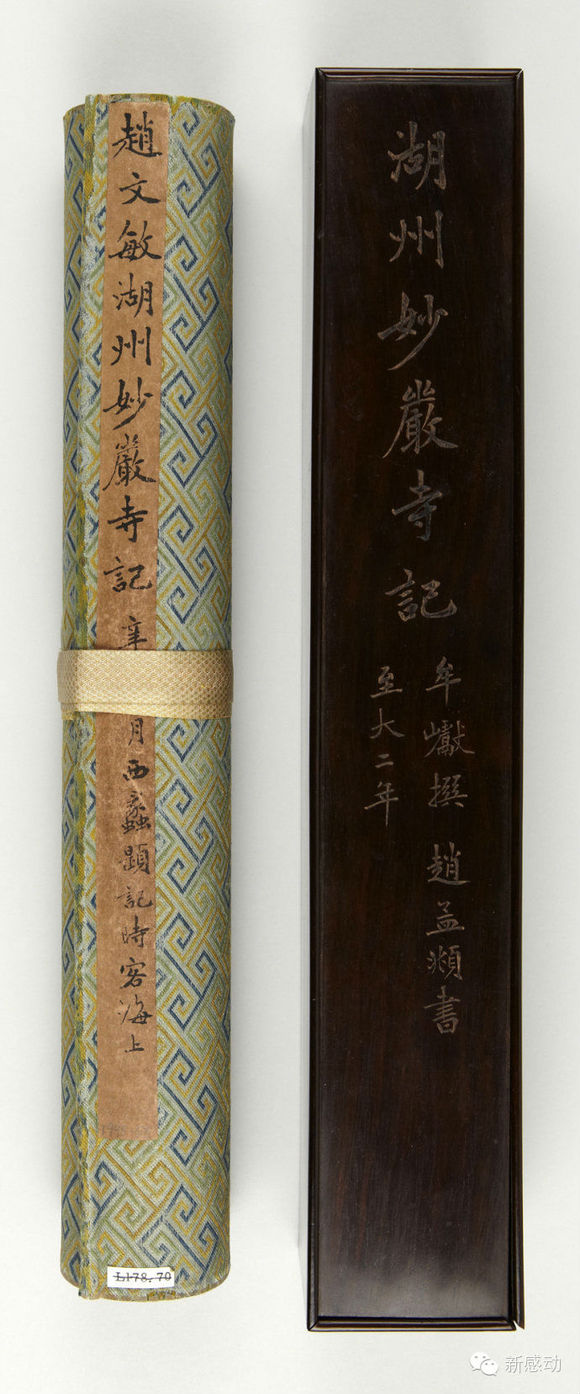 趙文敏湖州妙嚴寺記 辛 月西蠡題記時客海上
湖州妙嚴寺記
牟巘撰 趙孟頫書
至大二年
L178.70
新感动